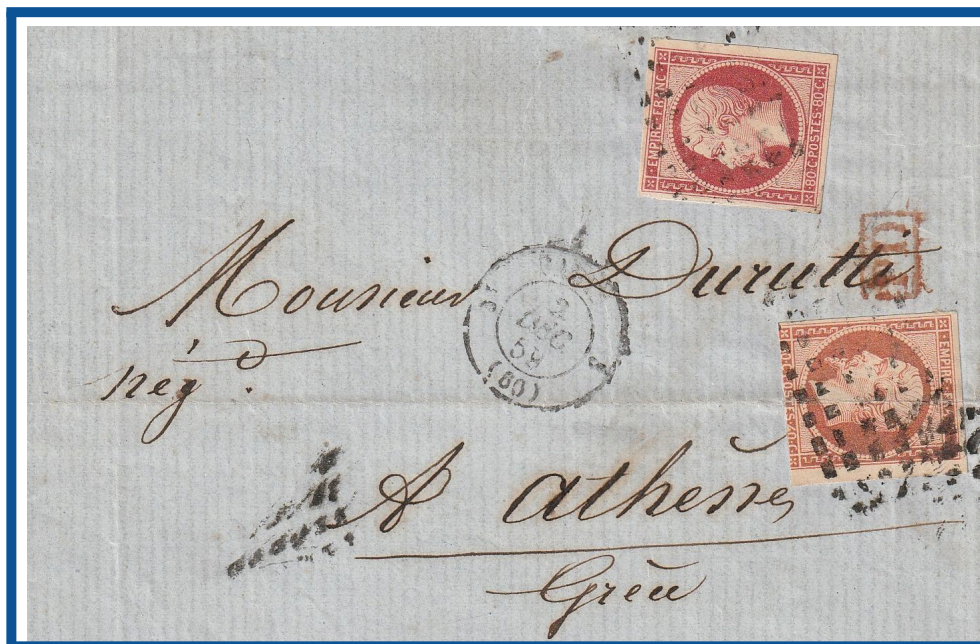 EMPIRE FRANC
80 C POSTES 80 C
Monsieur Durutté
nég
3
DEC
59
(60)
PD
EMPIRE
A athenes
Grèce